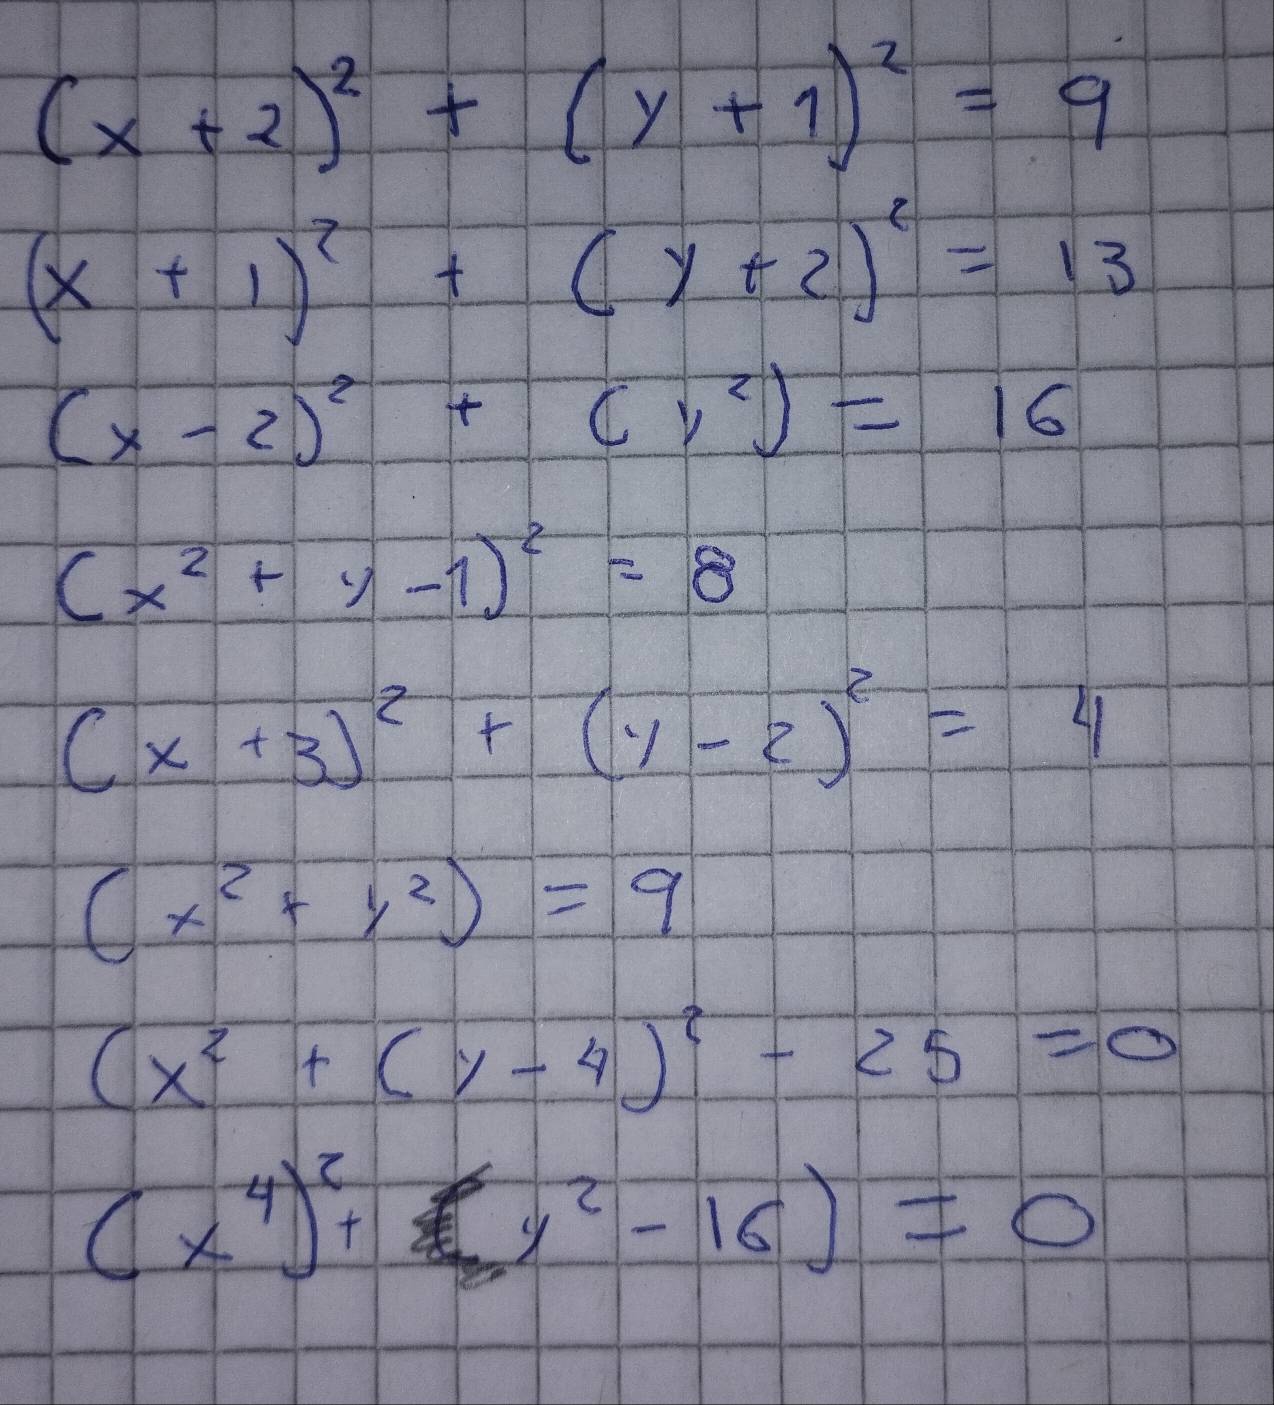 (x + 2)² + (y + 1)² = 9
(x + 1)² + (y + 2)² = 13
(x - 2)² + (y²) = 16
(x² + y - 1)² = 8
(x + 3)² + (y - 2)² = 4
(x² + y²) = 9
(x² + (y - 4)² - 25 = 0
(x⁴)² + (y² - 16) = 0